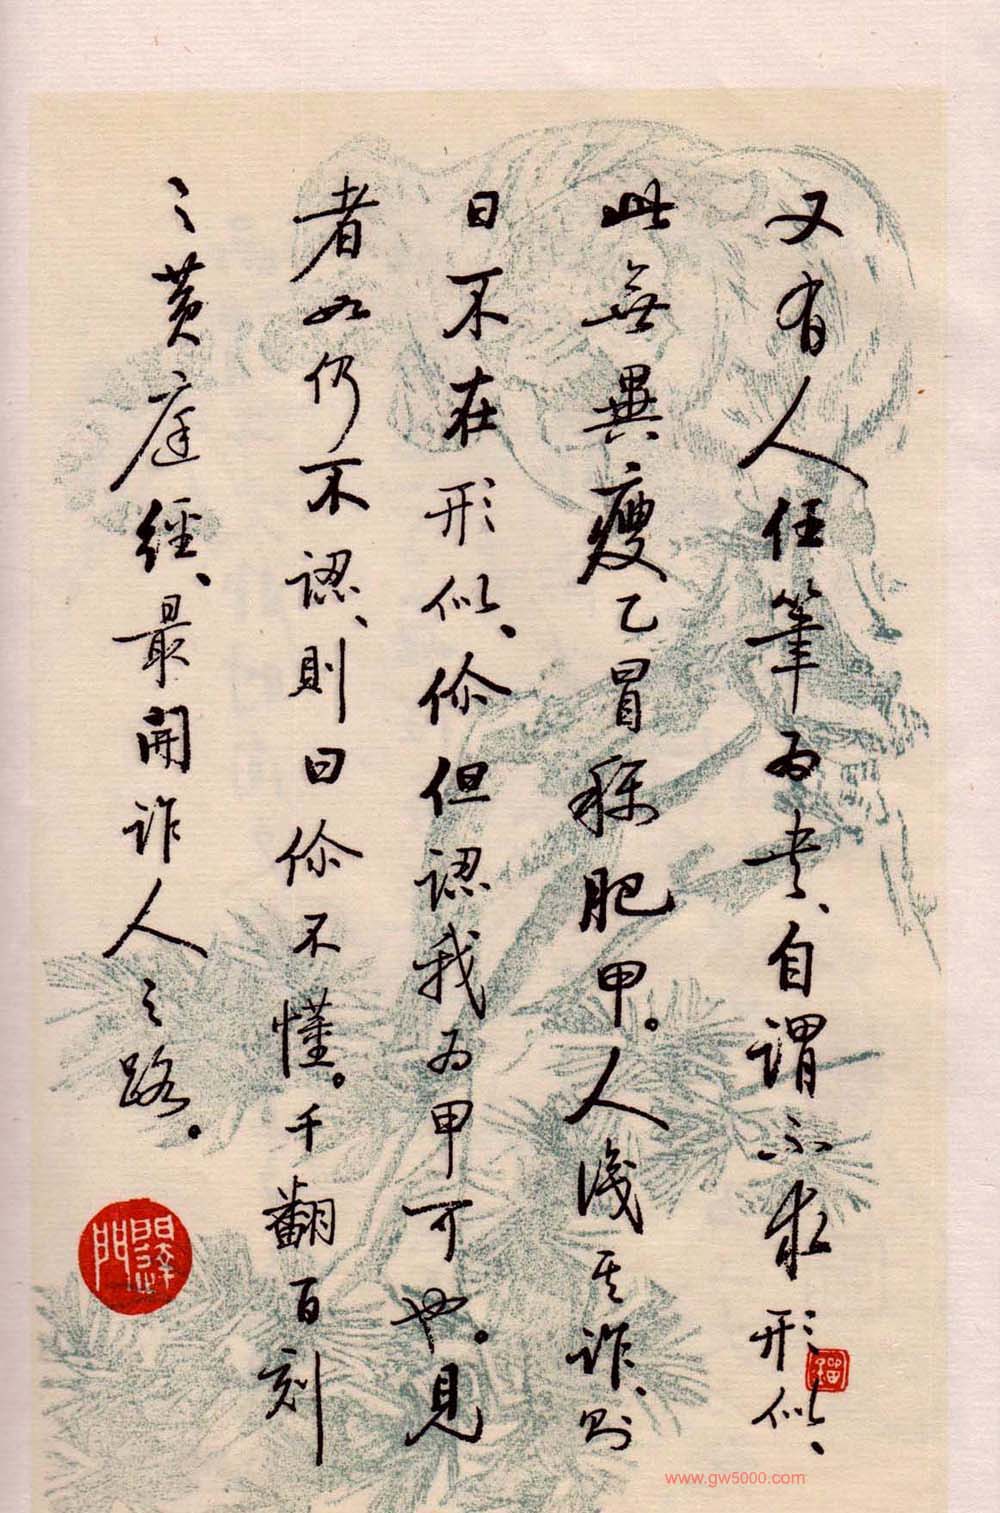 又有人任筆為書、自謂不求形似、
此無異瘦乙冒稱肥甲。人識其詐、則
曰不在形似、你但認我為甲可也。見
者如仍不認、則曰你不懂。千翻百刻
之黃庭經、最開詐人之路。
www.gw5000.com